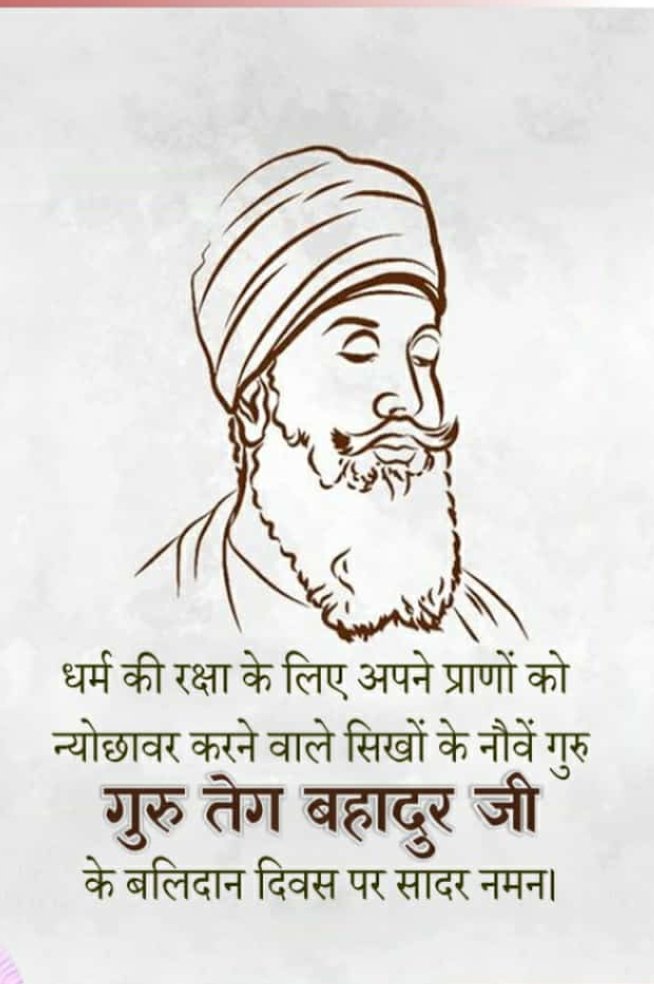 धर्म की रक्षा के लिए अपने प्राणों को
न्योछावर करने वाले सिखों के नौवें गुरु
गुरु तेग बहादुर जी
के बलिदान दिवस पर सादर नमन।